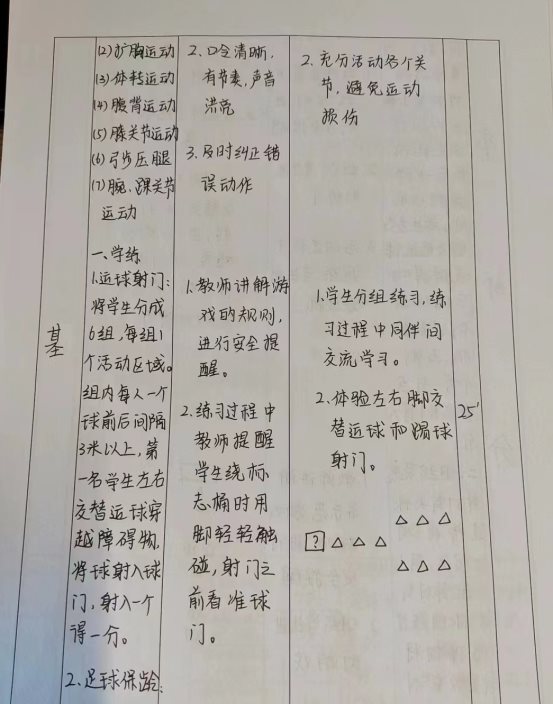 (2)扩胸运动
(3)体转运动
(4)腹背运动
(5)膝关节运动
(6)弓步压腿
(7)腕、踝关节
运动
一、学练
1.运球射门:
将学生分成
6组,每组1
个活动区域。
组内每人一个
球前后间隔
3米以上,第
一名学生左右
交替运球穿
越障碍物,
将球射入球
门,射入一个
得一分。
2.足球保龄:
2、口令清晰,
有节奏,声音
洪亮
3.及时纠正错
误动作
1.教师讲解游
戏的规则,
进行安全提
醒。
2.练习过程中
教师提醒
学生绕标
志桶时用
脚轻轻触
碰,射门之
前看准球
门。
2.充分活动各个关
节,避免运动
损伤
1.学生分组练习,练
习过程中同伴间
交流学习。
2.体验左右脚交
替运球和踢球
射门。
?
基
25'